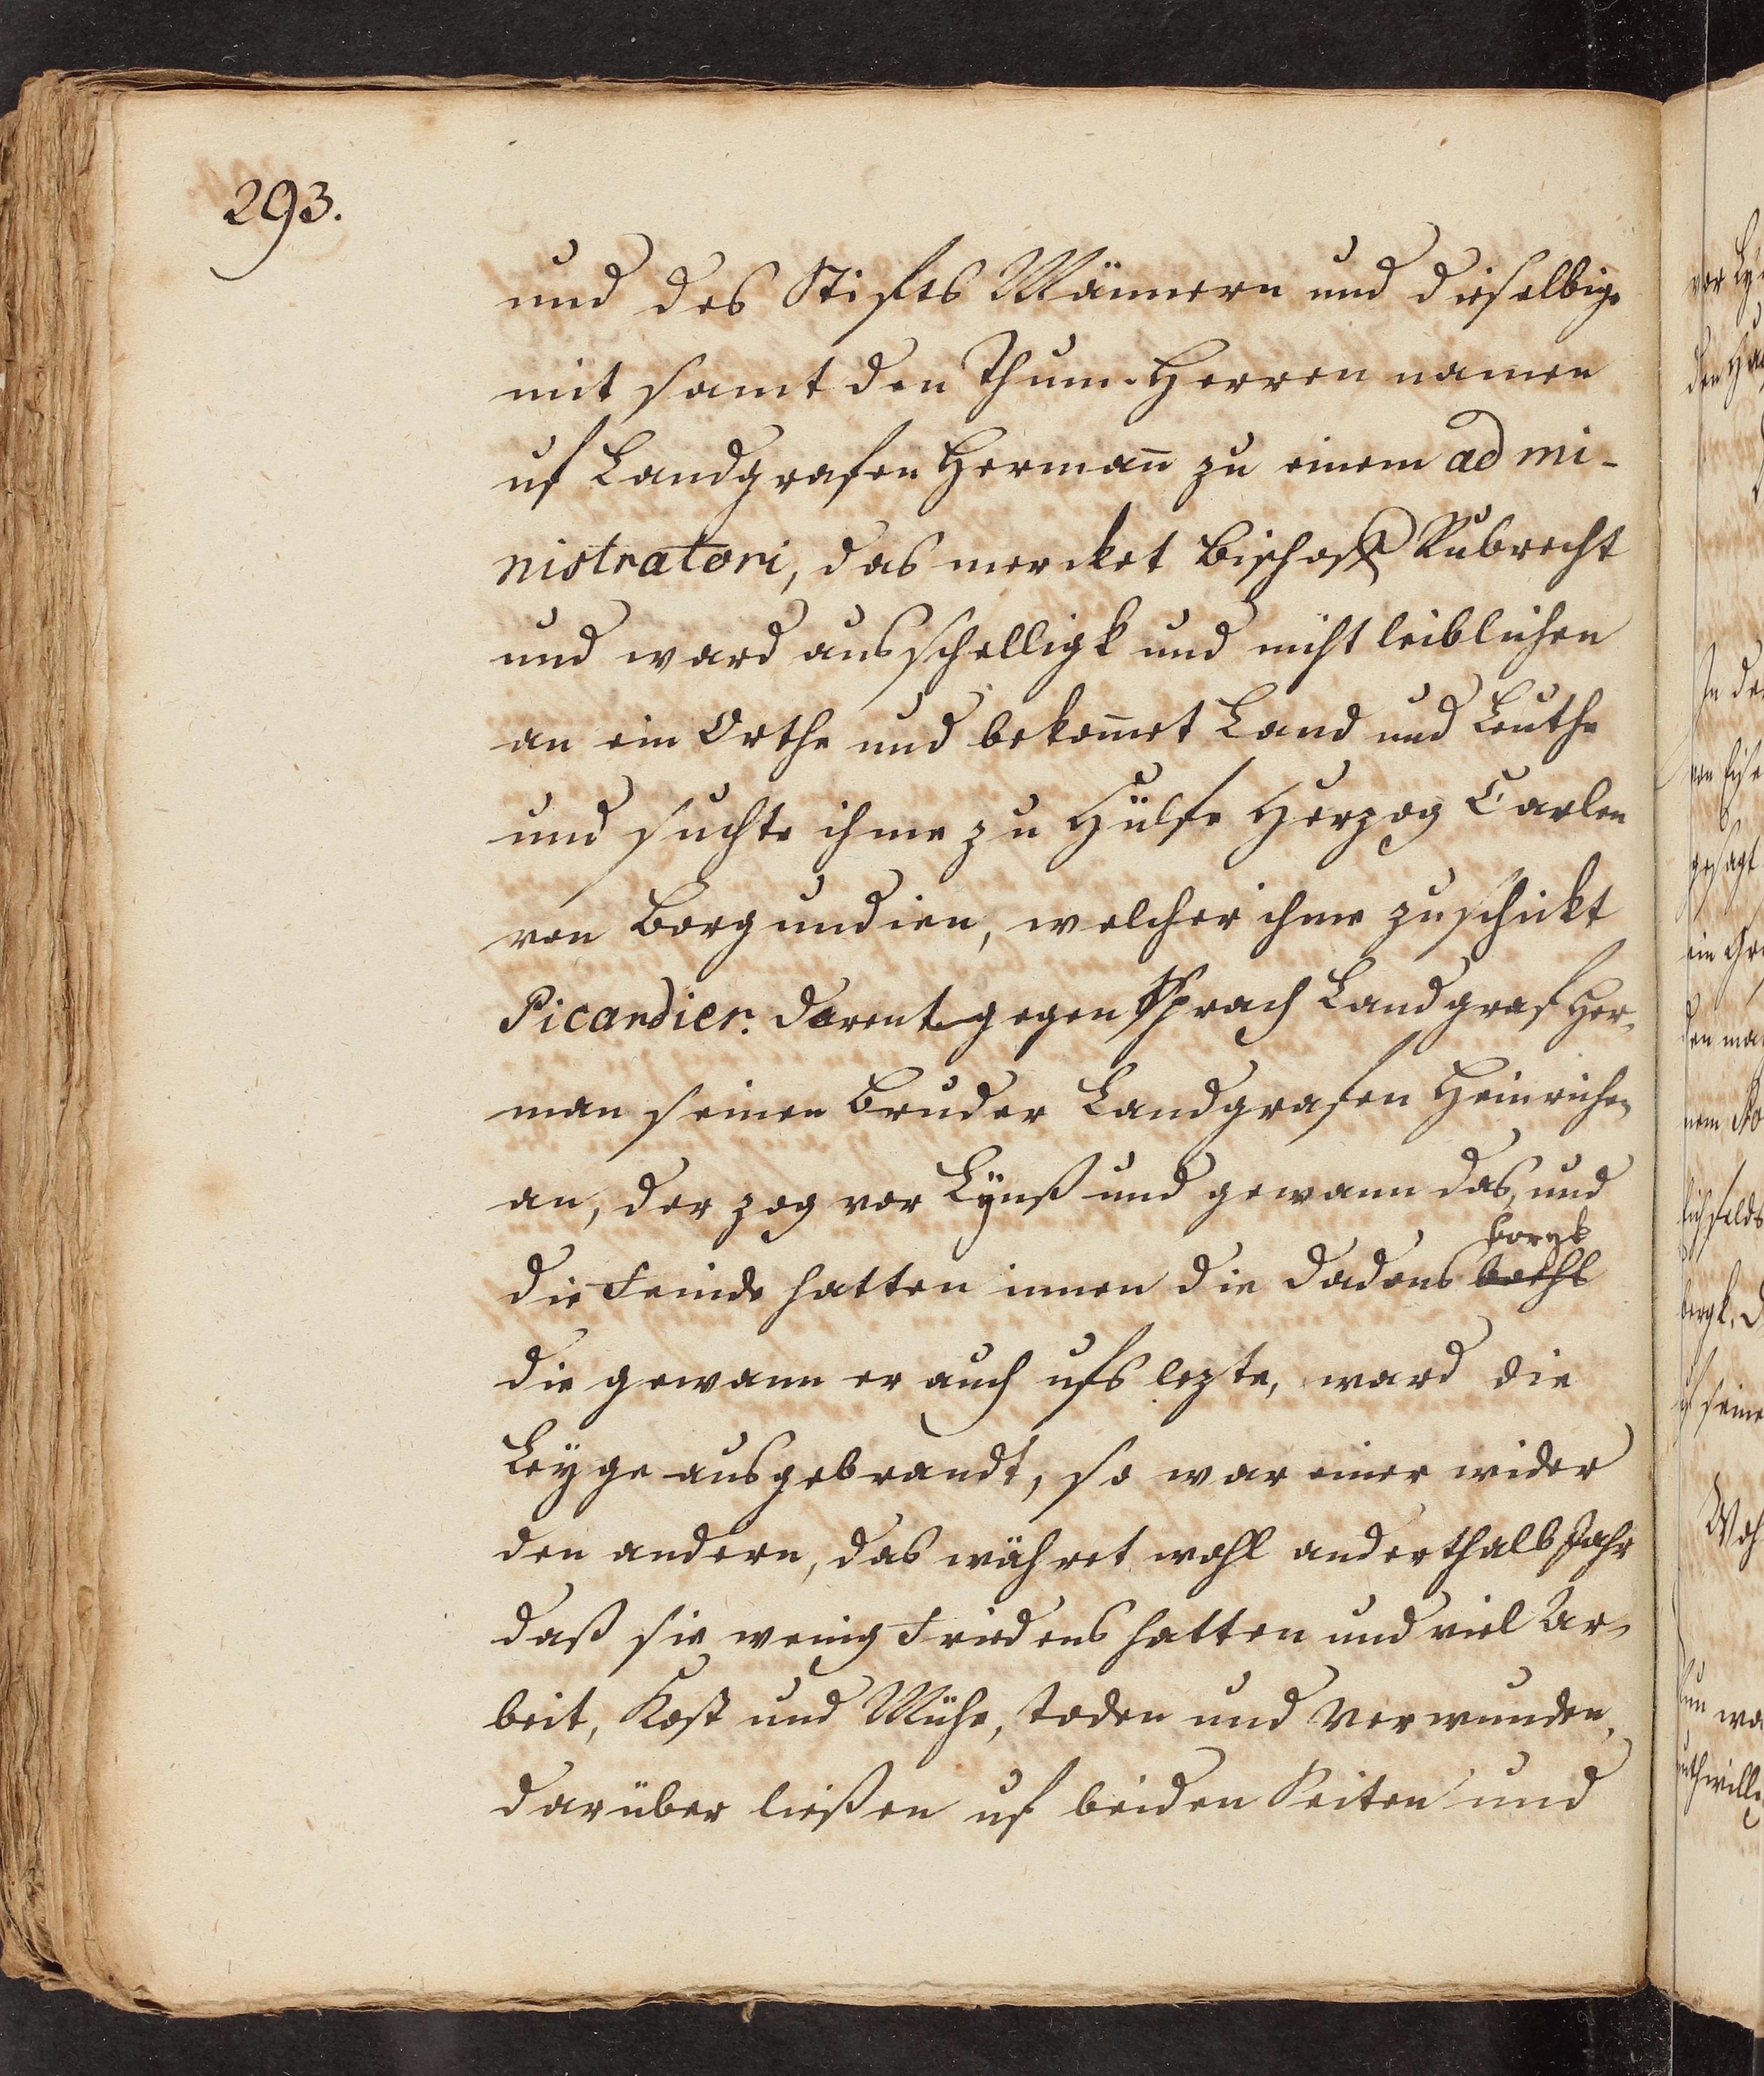 293.
und des Stiftes Männern und dieselbige
mit samt den Thum-Herren namen
uf Landgrafen Hermañ zu einem admi-
nistratori, das mercket Bischoff Rubrecht
und ward ausschelligk und nicht leiblichen
an ein Orthe und bekom̃et Land und Leuthe
und suchte ihme zu Hülfe Herzog Carlen
von Borgundien, welcher ihme zuschickt
Picardier. Darentgegen sprach Landgraf Her-
man seinen Bruder Landgrafen Heinrichen
an, der zog vor Lÿnß und gewann das, und
die Feinde hatten innen die Dadens borgk
die gewann er auch ufs lezte, ward die
Leÿge ausgebrandt, so war einer wider
den andern, das währet wohl anderthalb Jahr
daß sie wenig Friedens hatten und viel Ar-
beit, Kost und Mühe, toden und verwunden,
darüber ließen uf beiden Seiten und